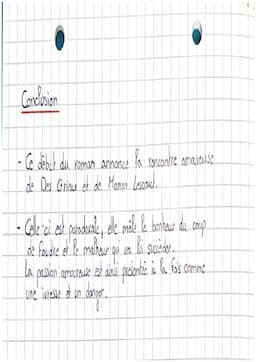 Conclusion
- Ce début du roman annonce la rencontre amoureuse
de Des Grieux et de Manon Lescaut.
- Celle-ci est paradoxale, elle mêle le bonheur du coup
de foudre et le malheur qui va lui succéder.
La passion amoureuse est ainsi présentée à la fois comme
une ivresse et un danger.